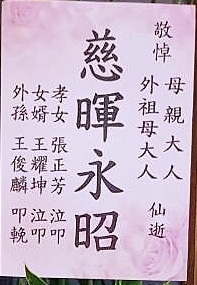 敬悼
母親大人
外祖母大人
仙逝
慈暉永昭
孝女 張正芳 泣叩
女婿 王耀坤 泣叩
外孫 王俊麟 叩輓